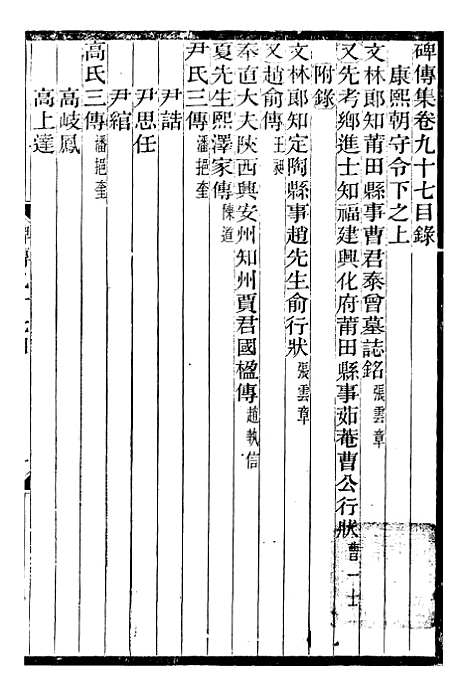 碑傳集卷九十七目錄
康熙朝守令下之上
文林郎知莆田縣事曹君泰曾墓誌銘 張雲章
又先考鄉進士知福建興化府莆田縣事茹菴曹公行狀 曹一士
附錄
文林郎知定陶縣事趙先生俞行狀 張雲章
又趙俞傳 王昶
奉直大夫陝西興安州知州賈君國楹傳 趙執信
夏先生熙澤家傳 陳道
尹氏三傳 潘挹奎
尹喆
尹思任
尹綰
高氏三傳 潘挹奎
高岐鳳
高上達